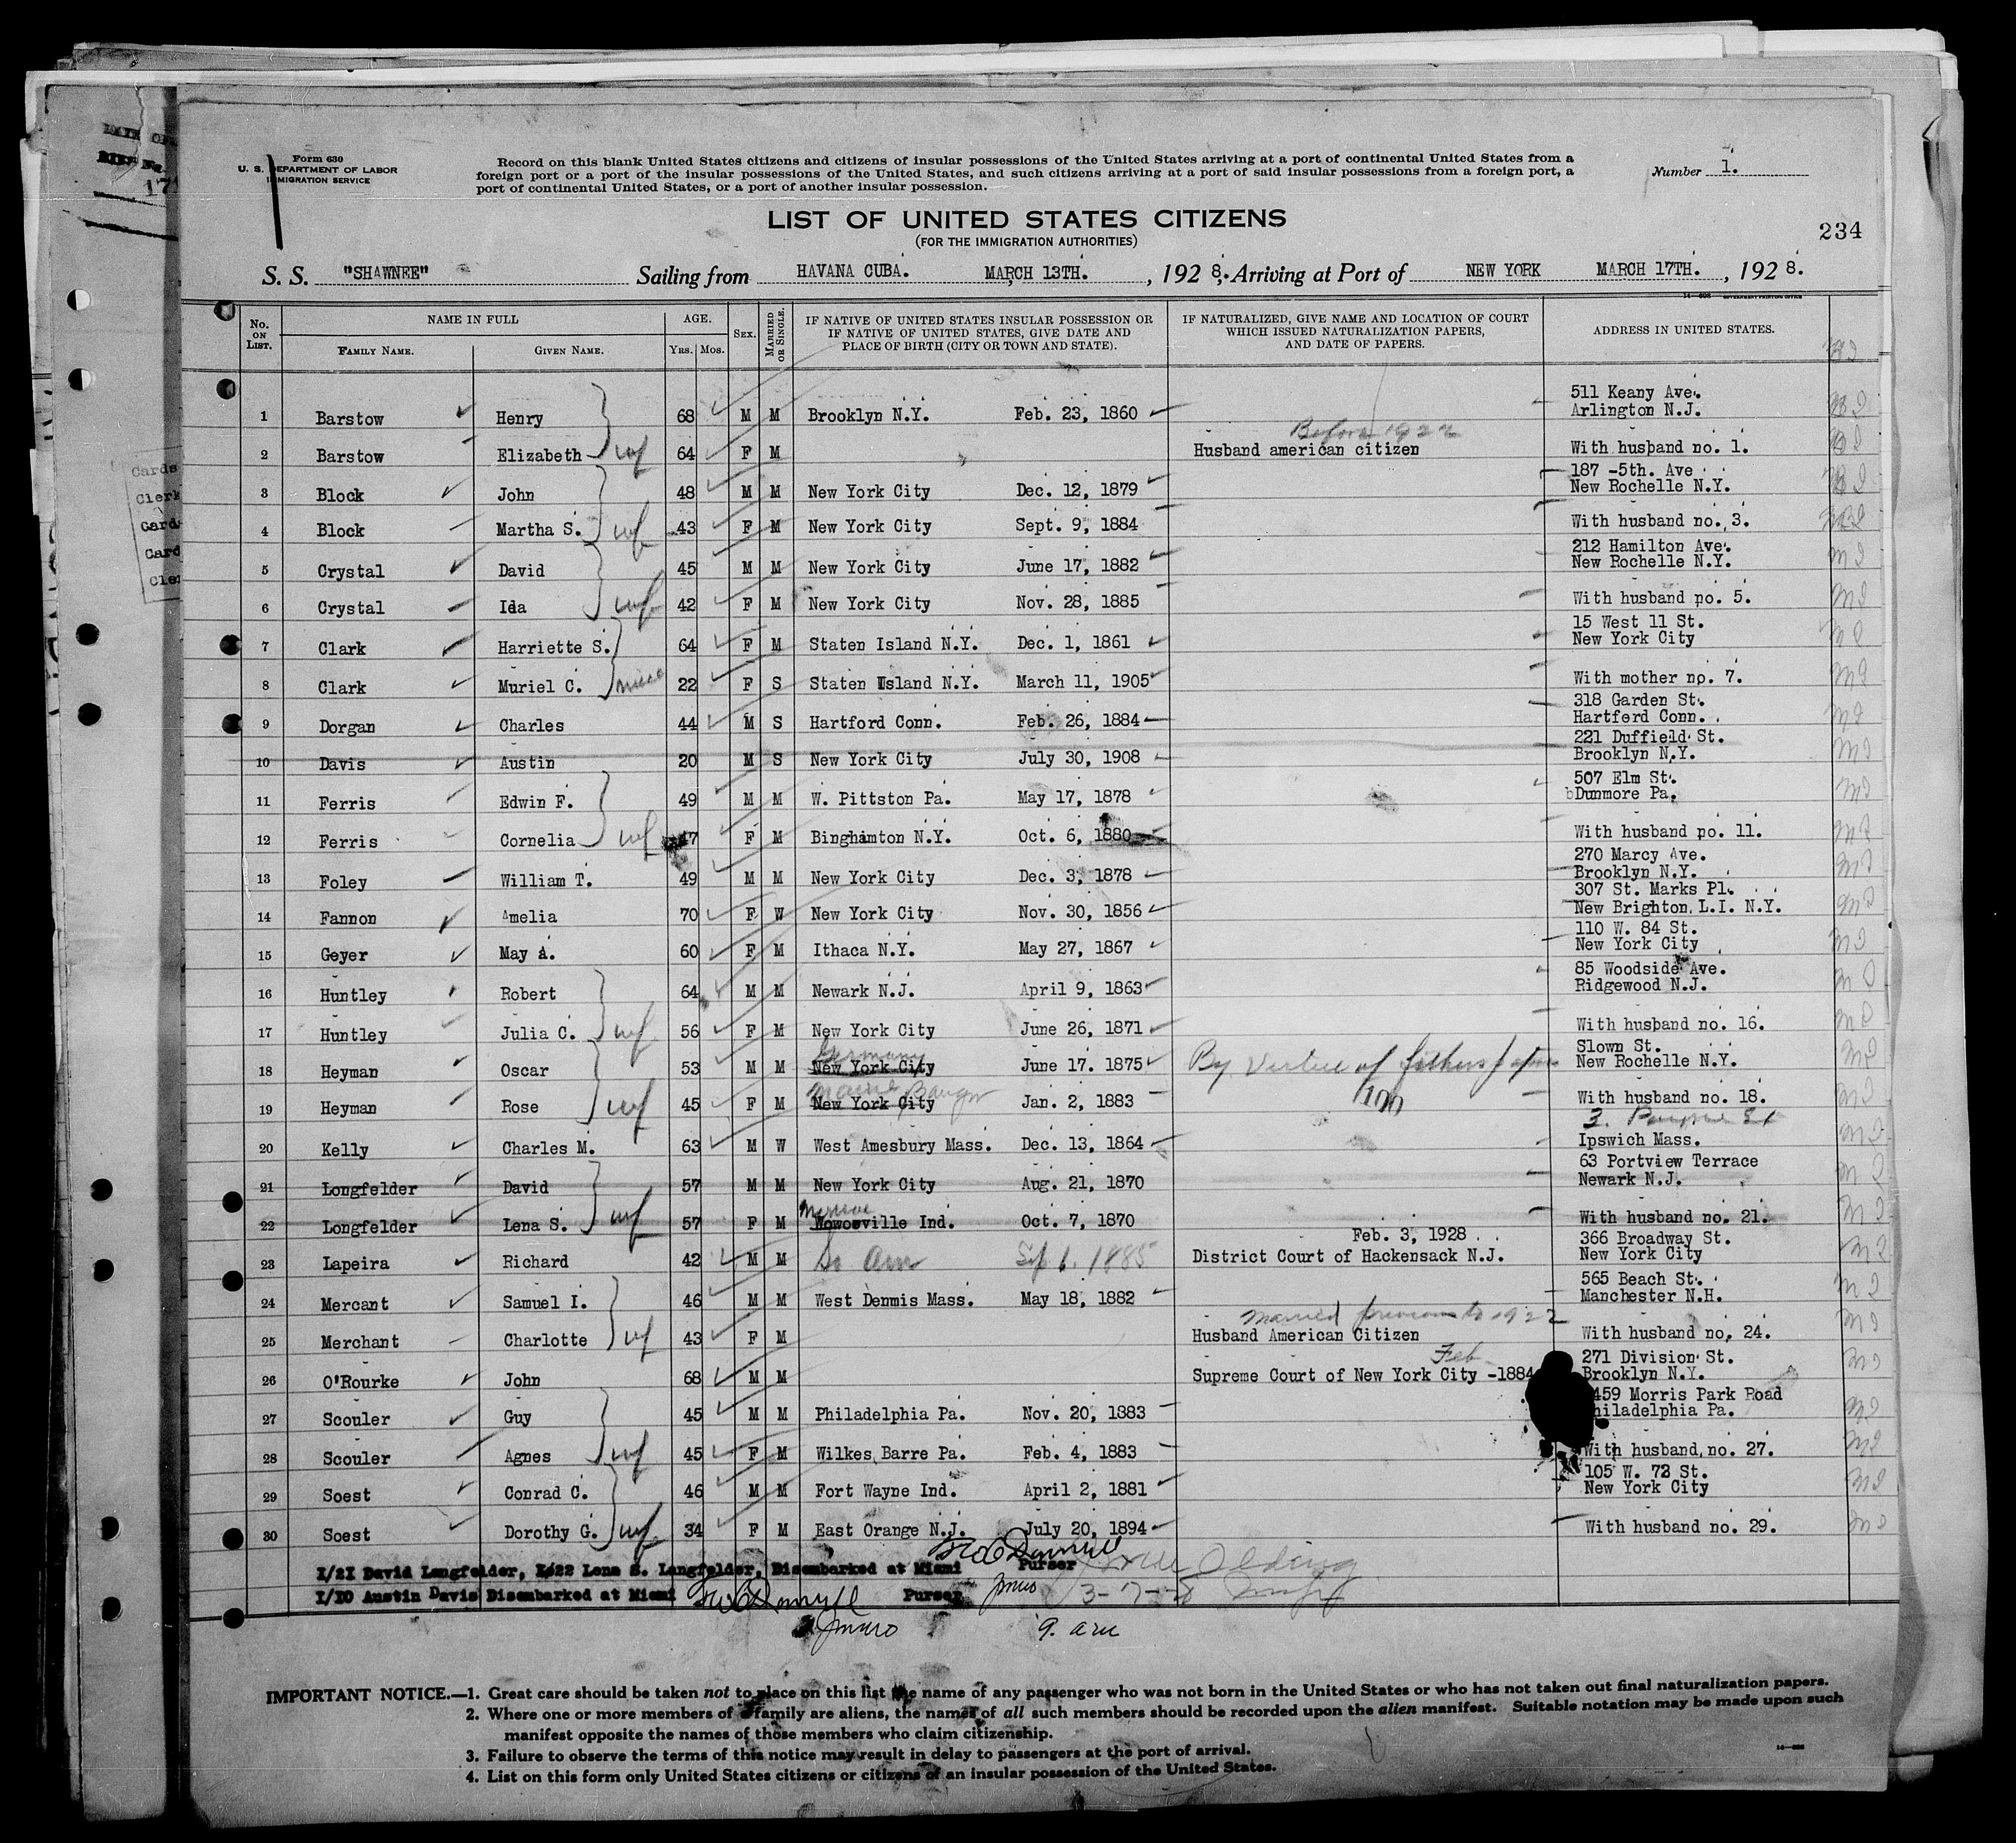 Form 630
U. S. DEPARTMENT OF LABOR
IMMIGRATION SERVICE
Record on this blank United States citizens and citizens of insular possessions of the United States arriving at a port of continental United States from a
foreign port or a port of the insular possessions of the United States, and such citizens arriving at a port of said insular possessions from a foreign port, a
port of continental United States, or a port of another insular possession.
Number 1.
LIST OF UNITED STATES CITIZENS
(FOR THE IMMIGRATION AUTHORITIES)
234
S. S. "SHAWNEE" Sailing from HAVANA CUBA. MARCH 13TH. , 192 8. Arriving at Port of NEW YORK MARCH 17TH. , 192 8.
No. ON LIST. NAME IN FULL FAMILY NAME. GIVEN NAME. AGE. YRS. MOS. SEX. MARRIED OR SINGLE. IF NATIVE OF UNITED STATES INSULAR POSSESSION OR IF NATIVE OF UNITED STATES, GIVE DATE AND PLACE OF BIRTH (CITY OR TOWN AND STATE). IF NATURALIZED, GIVE NAME AND LOCATION OF COURT WHICH ISSUED NATURALIZATION PAPERS, AND DATE OF PAPERS. ADDRESS IN UNITED STATES.
511 Keany Ave.
1 Barstow Henry 68 M M Brooklyn N.Y. Feb. 23, 1860 Arlington N.J.
Before 1922
2 Barstow Elizabeth wf 64 F M Husband american citizen With husband no. 1.
187 -5th. Ave
3 Block John 48 M M New York City Dec. 12, 1879 New Rochelle N.Y.
4 Block Martha S. wf 43 F M New York City Sept. 9, 1884 With husband no. 3.
212 Hamilton Ave.
5 Crystal David 45 M M New York City June 17, 1882 New Rochelle N.Y.
6 Crystal Ida wf 42 F M New York City Nov. 28, 1885 With husband no. 5.
15 West 11 St.
7 Clark Harriette S. 64 F M Staten Island N.Y. Dec. 1, 1861 New York City
8 Clark Muriel C. niece 22 F S Staten Usland N.Y. March 11, 1905 With mother no. 7.
318 Garden St.
9 Dorgan Charles 44 M S Hartford Conn. Feb. 26, 1884 Hartferd Conn.
221 Duffield St.
10 Davis Austin 20 M S New York City July 30, 1908 Brooklyn N.Y.
507 Elm St.
11 Ferris Edwin F. 49 M M W. Pittston Pa. May 17, 1878 Dunmore Pa.
12 Ferris Cornelia wf 47 F M Binghimton N.Y. Oct. 6, 1880 With husband no. 11.
270 Marcy Ave.
13 Foley William T. 49 M M New York City Dec. 3, 1878 Brooklyn N.Y.
307 St. Marks Pl.
14 Fannon Amelia 70 F W New York City Nov. 30, 1856 New Brighton, L.I. N.Y.
110 W. 84 St.
15 Geyer May A. 60 F M Ithaca N.Y. May 27, 1867 New York City
85 Woodside Ave.
16 Huntley Robert 64 M M Newark N.J. April 9, 1863 Ridgewood N.J.
17 Huntley Julia C. wf 56 F M New York City June 26, 1871 With husband no. 16.
Germany Slown St.
18 Heyman Oscar 53 M M New York City June 17. 1875 By Virtue of fathers New Rochelle N.Y.
Maine Bangor 100
19 Heyman Rose wf 45 F M New York City Jan. 2, 1883 With husband no. 18.
20 Kelly Charles M. 63 M W West Amesbury Mass. Dec. 13, 1864 Ipswich Mass.
63 Portview Terrace
21 Longfelder David 57 M M New York City Aug. 21, 1870 Newark N.J.
22 Longfelder Lena S. wf 57 F M Ind. Oct. 7, 1870 With husband no. 21.
Feb. 3, 1928 366 Broadway St.
23 Lapeira Richard 42 M M So Am Sep 6. 1885 District Court of Hackensack N.J. New York City
565 Beach St.
24 Mercant Samuel I. 46 M M West Denmis Mass. May 18, 1882 Manchester N.H.
Married previous to 1922
25 Merchant Charlotte wf 43 F M Husband American Citizen With husband no, 24.
Feb 271 Division St.
26 O'Rourke John 68 M M Supreme Court of New York City -1884 Brooklyn N.Y.
459 Morris Park Road
27 Scouler Guy 45 M M Philadelphia Pa. Nov. 20, 1883 hiladelphia Pa.
28 Scouler Agnes wf 45 F M Wilkes Barre Pa. Feb. 4, 1883 With husband no. 27.
105 W. 72 St.
29 Soest Conrad C. 46 M M Fort Wayne Ind. April 2, 1881 New York City
30 Soest Dorothy G. wf 34 F M East Orange N.J. July 20, 1894 With husband no. 29.
I/2I David Longfelder, I/22 Lena S. Langfelder, Disembarked at Miami Purser
I/I0 Austin Davis Disembarked at Miami Purser
IMPORTANT NOTICE.—1. Great care should be taken not to place on this list the name of any passenger who was not born in the United States or who has not taken out final naturalization papers.
2. Where one or more members of a family are aliens, the names of all such members should be recorded upon the alien manifest. Suitable notation may be made upon such
manifest opposite the names of those members who claim citizenship.
3. Failure to observe the terms of this notice may result in delay to passengers at the port of arrival.
4. List on this form only United States citizens or citizens of an insular possession of the United States.